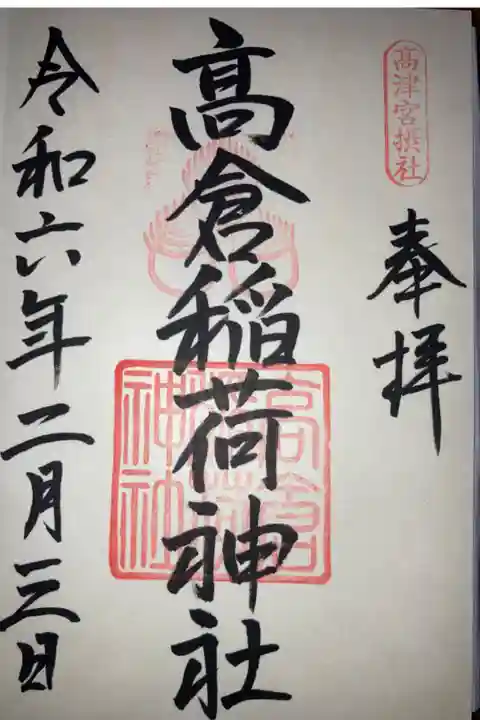 高津宮摂社
奉拝
髙倉稲荷神社
高倉稲荷神社
令和六年二月三日